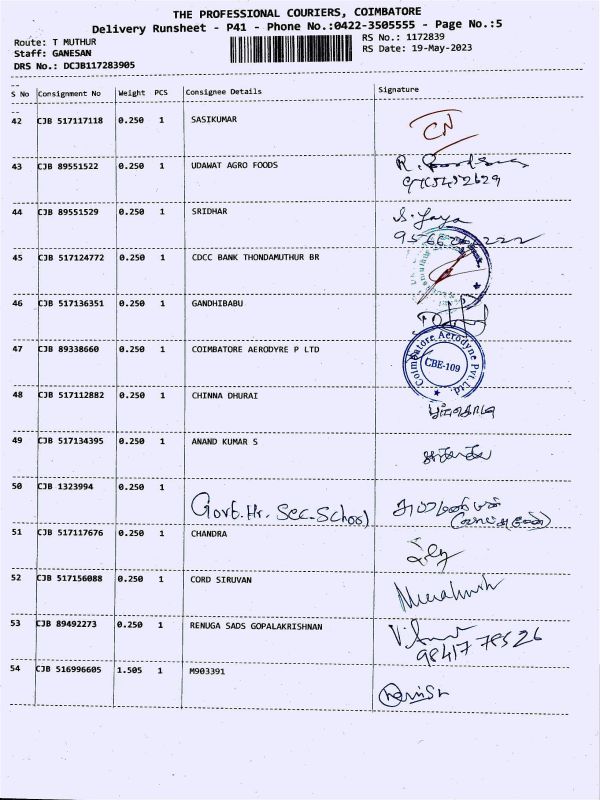 THE PROFESSIONAL COURIERS, COIMBATORE
Delivery Runsheet - P41 - Phone No.:0422-3505555 - Page No.:5
Route: T MUTHUR
RS No.: 1172839
Staff: GANESAN
RS Date: 19-May-2023
DRS No.: DCJB117283905
S No Consignment No Weight PCS Consignee Details Signature
42 CJB 517117118 0.250 1 SASIKUMAR
43 CJB 89551522 0.250 1 UDAWAT AGRO FOODS
44 CJB 89551529 0.250 1 SRIDHAR S. Jaya
45 CJB 517124772 0.250 1 CDCC BANK THONDAMUTHUR BR
46 CJB 517136351 0.250 1 GANDHIBABU
47 CJB 89338660 0.250 1 COIMBATORE AERODYRE P LTD Coimbatore Aerodyne Pvt. Ltd. CBE-109
48 CJB 517112882 0.250 1 CHINNA DHURAI
49 CJB 517134395 0.250 1 ANAND KUMAR S
50 CJB 1323994 0.250 1 Govt. Hr. Sec. School
51 CJB 517117676 0.250 1 CHANDRA
52 CJB 517156088 0.250 1 CORD SIRUVAN
53 CJB 89492273 0.250 1 RENUGA SADS GOPALAKRISHNAN
98417 78526
54 CJB 516996605 1.505 1 M903391